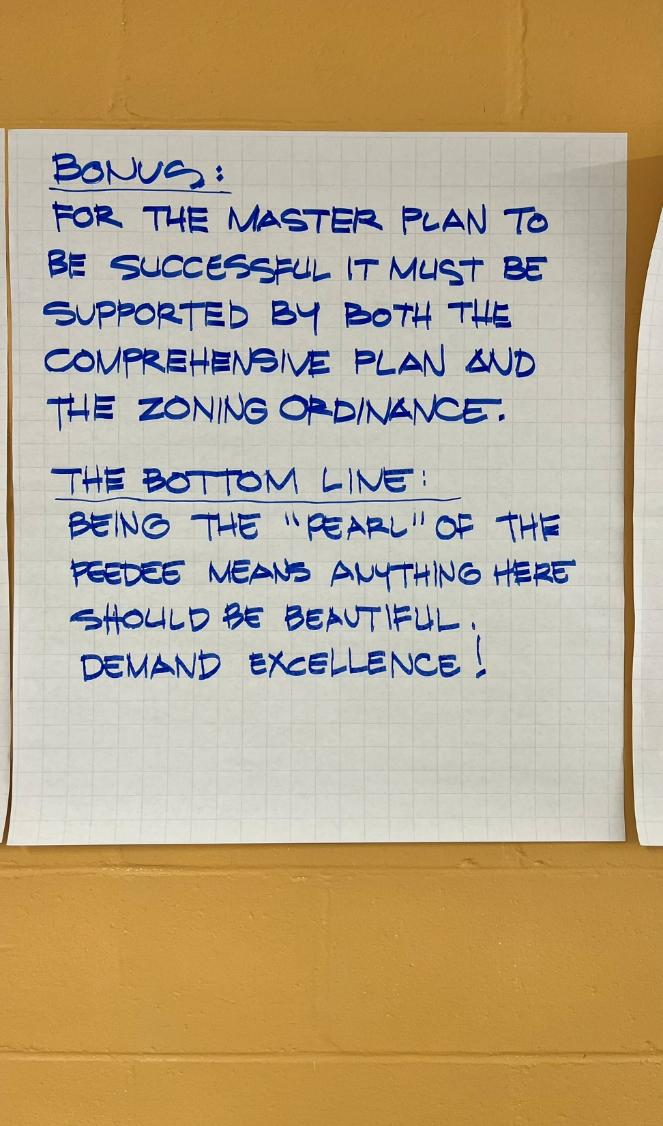 BONUS:
FOR THE MASTER PLAN TO
BE SUCCESSFUL IT MUST BE
SUPPORTED BY BOTH THE
COMPREHENSIVE PLAN AND
THE ZONING ORDINANCE.
THE BOTTOM LINE:
BEING THE "PEARL" OF THE
PEEDEE MEANS ANYTHING HERE
SHOULD BE BEAUTIFUL.
DEMAND EXCELLENCE!